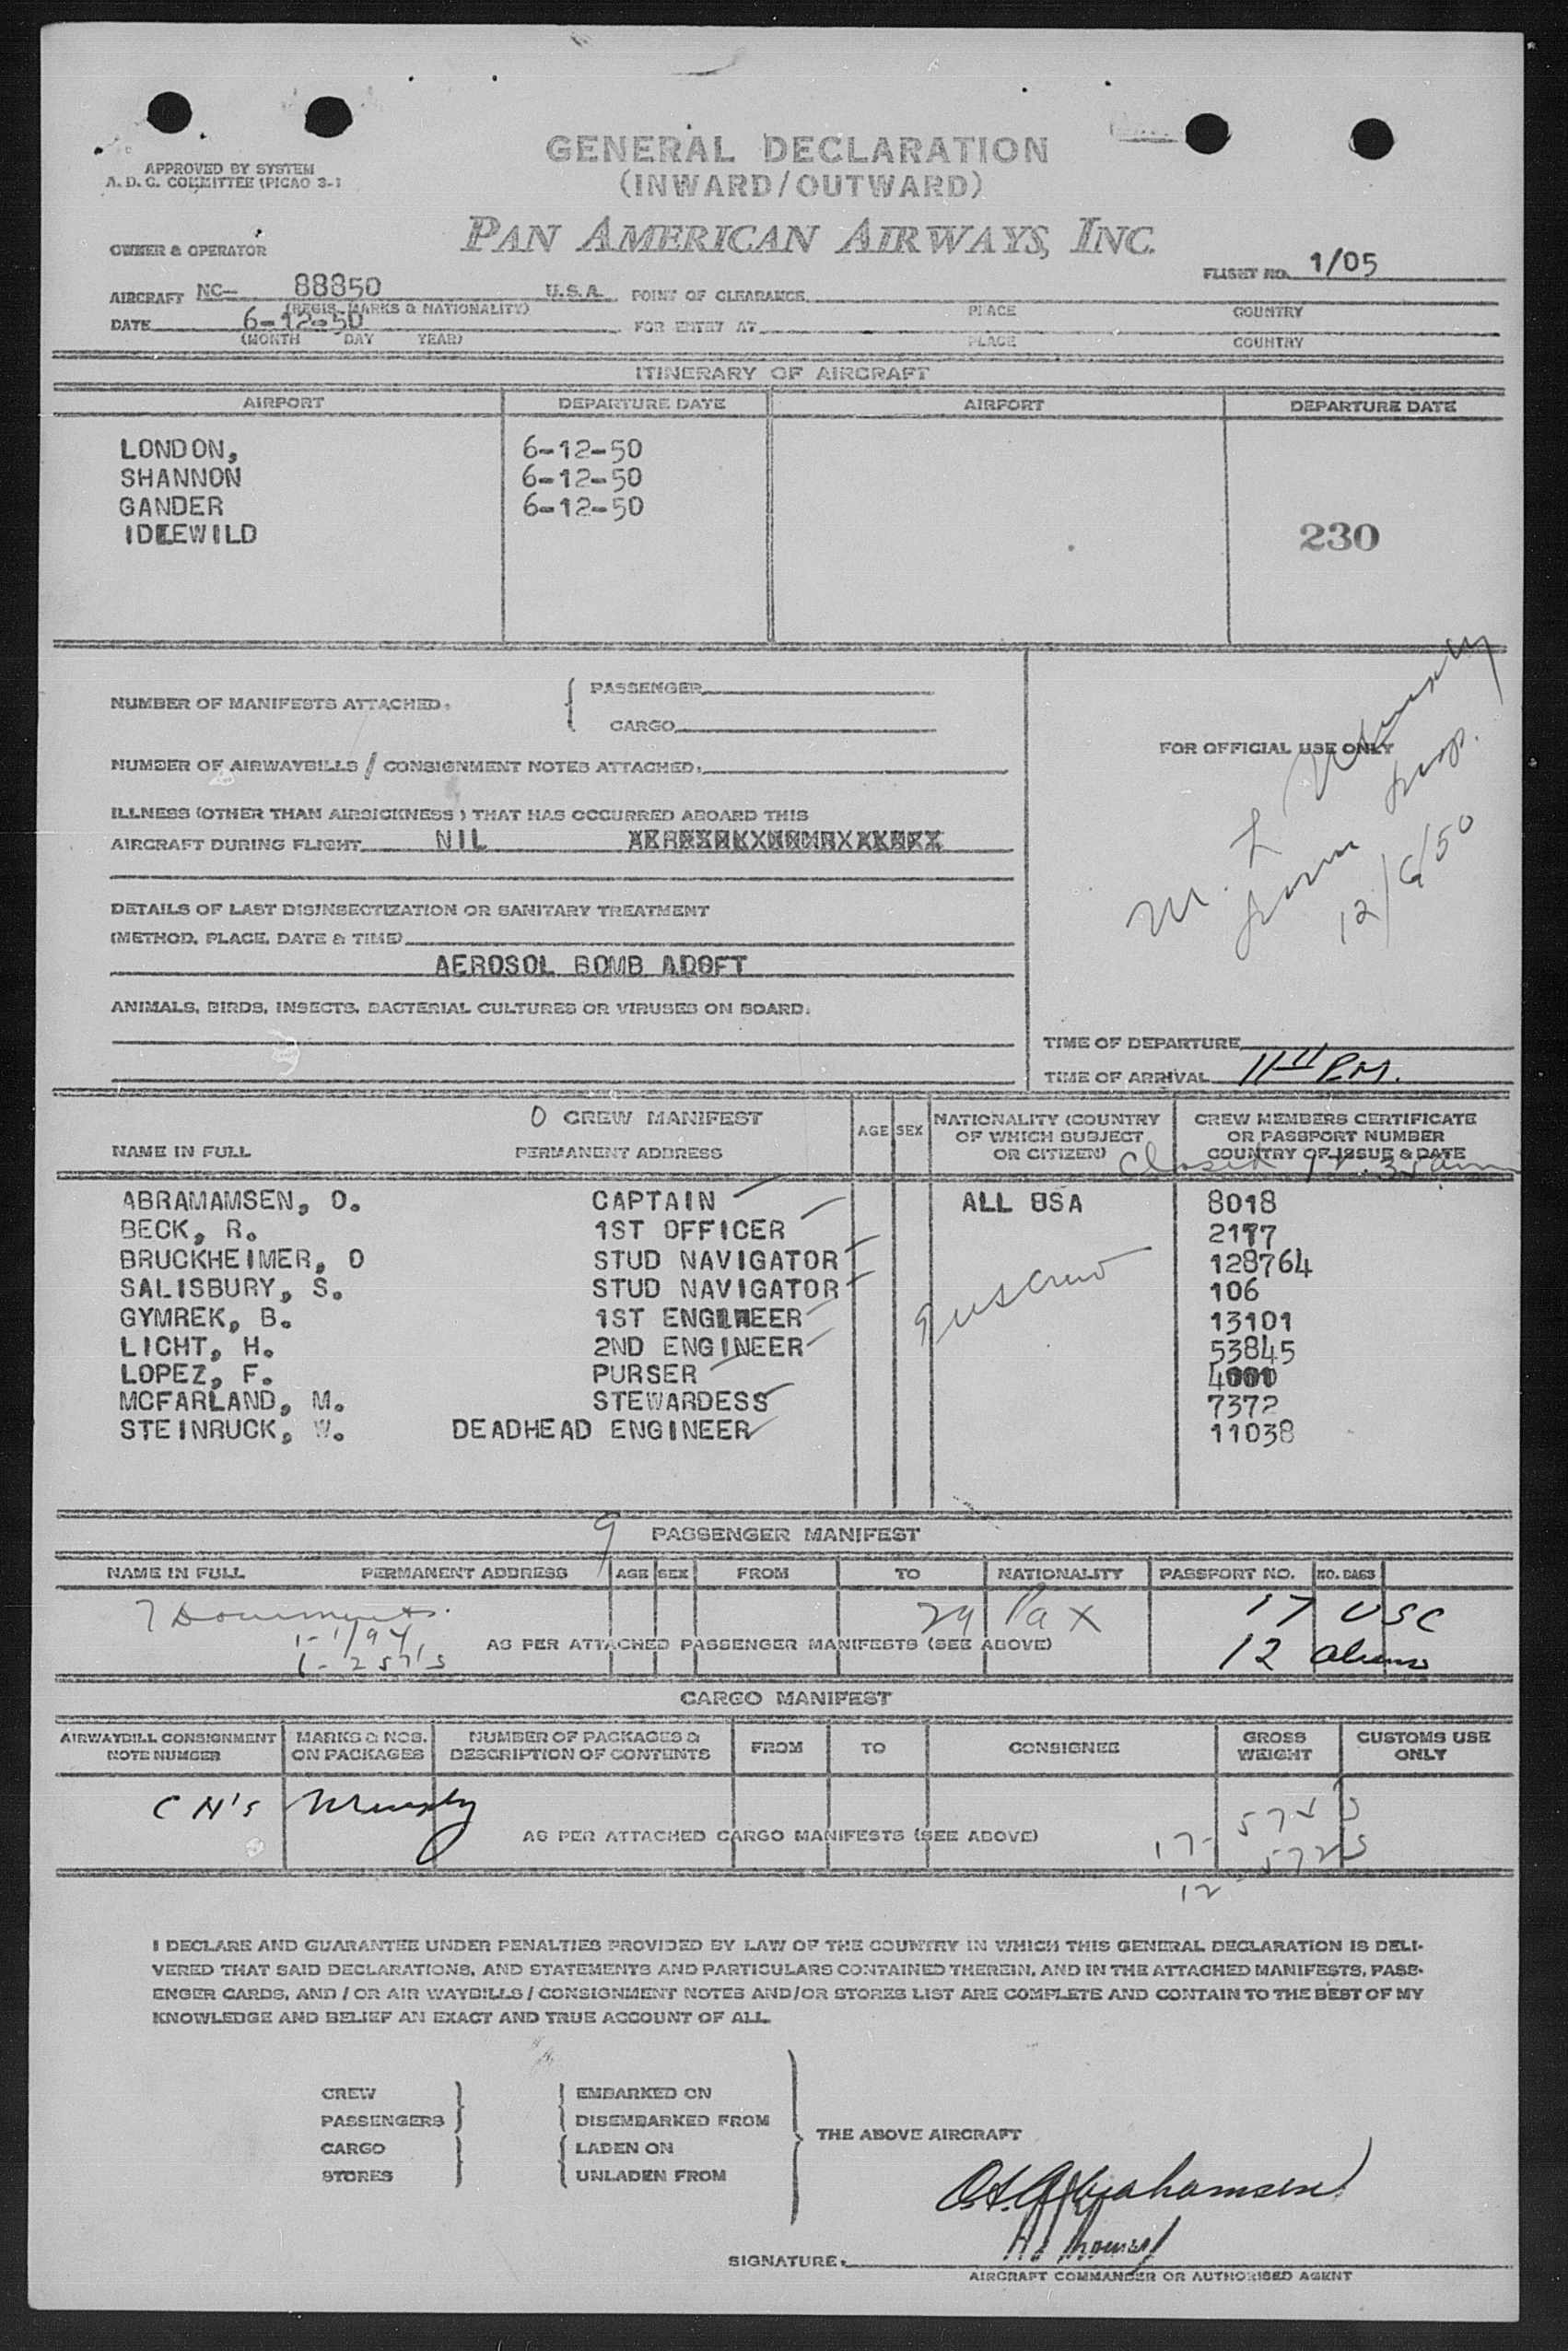 GENERAL DECLARATION
(INWARD/OUTWARD)
APPROVED BY SYSTEM
A. D. C. COMMITTEE (PICAO 3-1
PAN AMERICAN AIRWAYS, INC.
OWNER & OPERATOR
FLIGHT NO. 1/05
AIRCRAFT NC- 88850 U.S.A. POINT OF CLEARANCE
(REGIS. MARKS & NATIONALITY) PLACE COUNTRY
DATE 6-12-50 FOR ENTRY AT
(MONTH DAY YEAR) PLACE COUNTRY
ITINERARY OF AIRCRAFT
AIRPORT DEPARTURE DATE AIRPORT DEPARTURE DATE
LONDON, 6-12-50
SHANNON 6-12-50
GANDER 6-12-50
IDLEWILD
230
NUMBER OF MANIFESTS ATTACHED. { PASSENGER
CARGO
FOR OFFICIAL USE ONLY
NUMBER OF AIRWAYBILLS / CONSIGNMENT NOTES ATTACHED:
ILLNESS (OTHER THAN AIRSICKNESS) THAT HAS OCCURRED ABOARD THIS
AIRCRAFT DURING FLIGHT NIL
M. L. Murphy
12/6/50
DETAILS OF LAST DISINSECTIZATION OR SANITARY TREATMENT
(METHOD, PLACE, DATE & TIME)
AEROSOL BOMB ADOFT
ANIMALS, BIRDS, INSECTS, BACTERIAL CULTURES OR VIRUSES ON BOARD:
TIME OF DEPARTURE
TIME OF ARRIVAL 11 11 P.M.
CREW MANIFEST
NAME IN FULL PERMANENT ADDRESS AGE SEX NATIONALITY (COUNTRY OF WHICH SUBJECT OR CITIZEN) CREW MEMBERS CERTIFICATE OR PASSPORT NUMBER COUNTRY OF ISSUE & DATE
Closed
ABRAMAMSEN, O. CAPTAIN ALL USA 8018
BECK, R. 1ST OFFICER 2177
BRUCKHEIMER, O STUD NAVIGATOR 128764
SALISBURY, S. STUD NAVIGATOR 106
GYMREK, B. 1ST ENGINEER 13101
LICHT, H. 2ND ENGINEER 53845
LOPEZ, F. PURSER
MCFARLAND, M. STEWARDESS 7372
STEINRUCK, W. DEADHEAD ENGINEER 11038
9 PASSENGER MANIFEST
NAME IN FULL PERMANENT ADDRESS AGE SEX FROM TO NATIONALITY PASSPORT NO. NO. BAGS
7 Documents. 29 Pax 17 USC
AS PER ATTACHED PASSENGER MANIFESTS (SEE ABOVE) 12 Aliens
1- 257's
CARGO MANIFEST
AIRWAYBILL CONSIGNMENT NOTE NUMBER MARKS & NOS. ON PACKAGES NUMBER OF PACKAGES & DESCRIPTION OF CONTENTS FROM TO CONSIGNEE GROSS WEIGHT CUSTOMS USE ONLY
C N's Murphy
AS PER ATTACHED CARGO MANIFESTS (SEE ABOVE) 17-
12
I DECLARE AND GUARANTEE UNDER PENALTIES PROVIDED BY LAW OF THE COUNTRY IN WHICH THIS GENERAL DECLARATION IS DELI-
VERED THAT SAID DECLARATIONS, AND STATEMENTS AND PARTICULARS CONTAINED THEREIN, AND IN THE ATTACHED MANIFESTS, PASS-
ENGER CARDS, AND / OR AIR WAYBILLS / CONSIGNMENT NOTES AND/OR STORES LIST ARE COMPLETE AND CONTAIN TO THE BEST OF MY
KNOWLEDGE AND BELIEF AN EXACT AND TRUE ACCOUNT OF ALL
CREW EMBARKED ON
PASSENGERS DISEMBARKED FROM
THE ABOVE AIRCRAFT
CARGO LADEN ON
STORES UNLADEN FROM
O.S. Abrahamsen
SIGNATURE.
AIRCRAFT COMMANDER OR AUTHORISED AGENT